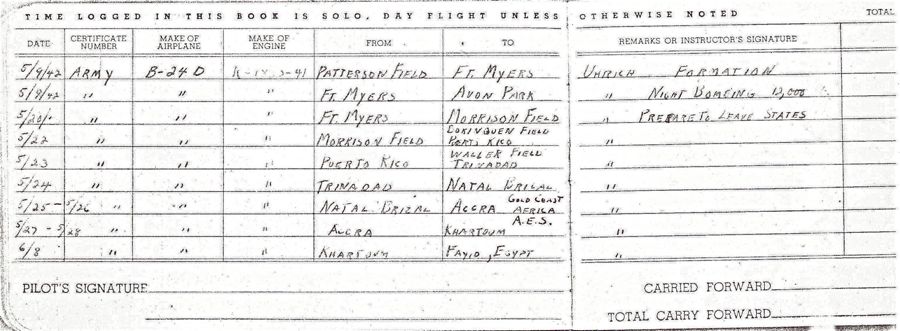 TIME LOGGED IN THIS BOOK IS SOLO, DAY FLIGHT UNLESS OTHERWISE NOTED TOTAL
DATE CERTIFICATE NUMBER MAKE OF AIRPLANE MAKE OF ENGINE FROM TO REMARKS OR INSTRUCTOR'S SIGNATURE
5/9/42 ARMY B-24 D PATTERSON FIELD FT. MYERS UHRICH FORMATION
5/9/42 " " " FT. MYERS AVON PARK " NIGHT BOMBING 12,000
5/20/. " " " FT. MYERS MORRISON FIELD " PREPARE TO LEAVE STATES
5/22 " " " MORRISON FIELD BORINQUEN FIELD PORTO RICO "
5/23 " " " PUERTO RICO WALLER FIELD TRINADAD "
5/24 " " " TRINADAD NATAL BRIZAL "
5/25 - 5/26 " " " NATAL BRIZAL ACCRA GOLD COAST AFRICA "
5/27 - 5/28 " " " ACCRA KHARTOUM A.E.S. "
6/8 " " " KHARTOUM FAYID, EGYPT "
PILOT'S SIGNATURE CARRIED FORWARD
TOTAL CARRY FORWARD